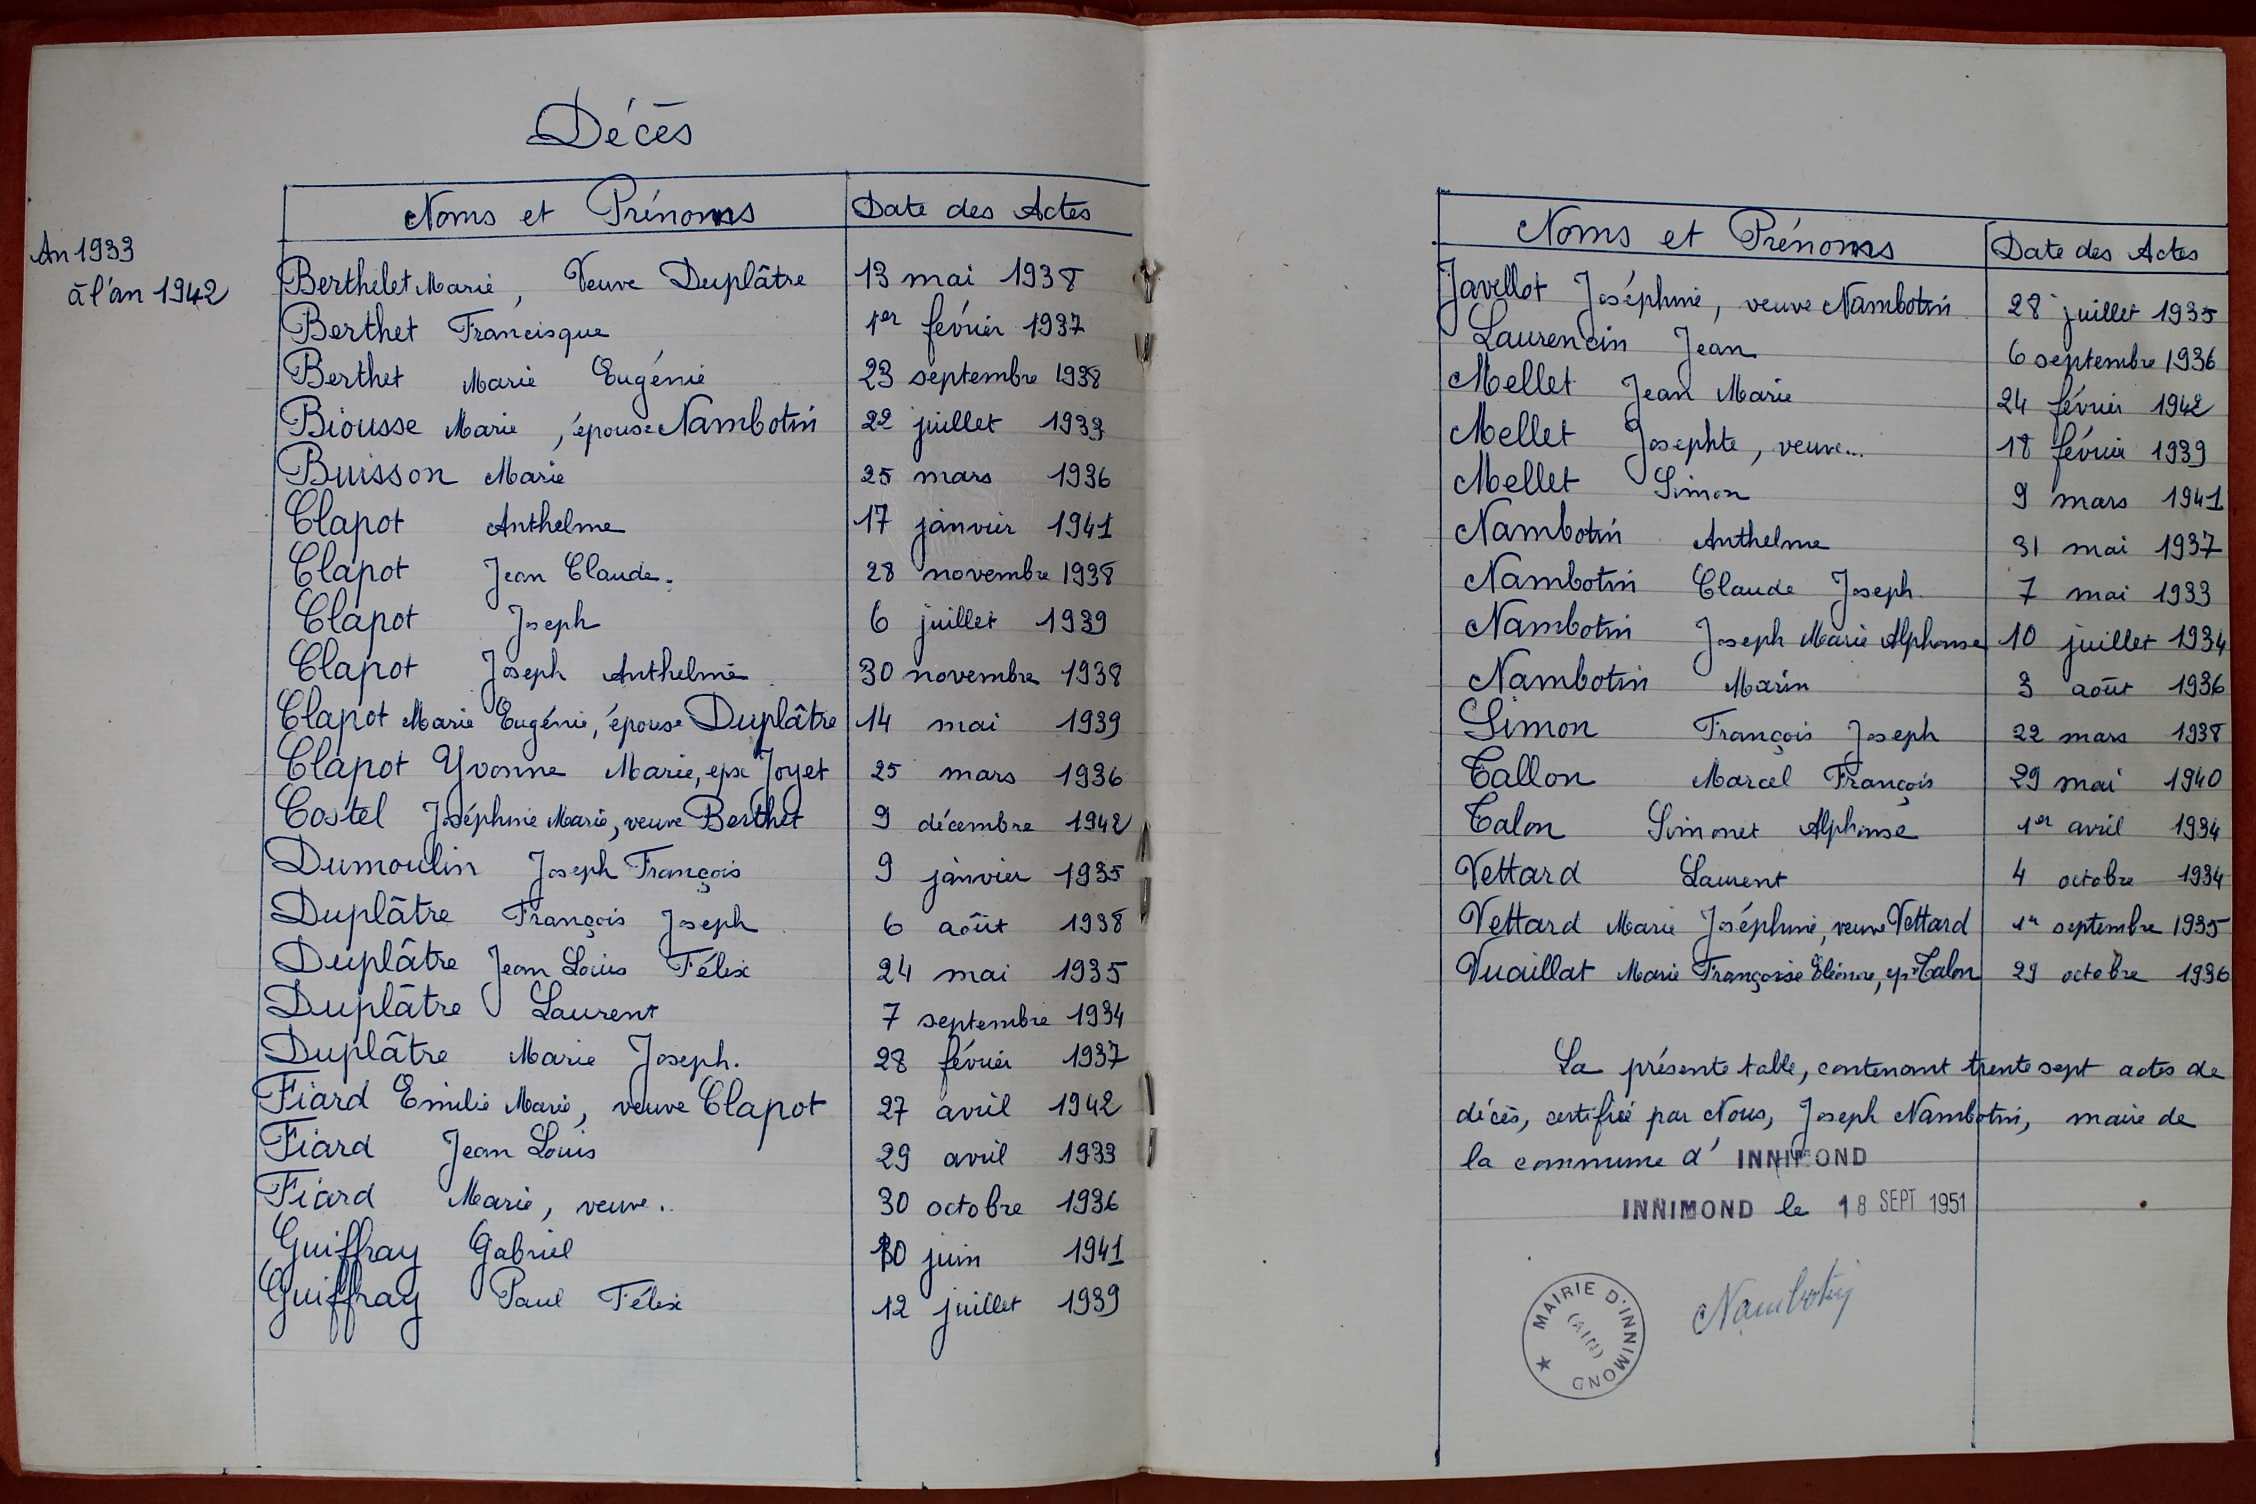 Décès
Noms et Prénoms Date des Actes
An 1933
à l'an 1942
Berthelet Marie, Veuve Duplâtre 13 mai 1938
Berthet Francisque 1er février 1937
Berthet Marie Eugénie 23 septembre 1938
Biousse Marie, épouse Nambotin 22 juillet 1933
Buisson Marie 25 mars 1936
Clapot Anthelme 17 janvier 1941
Clapot Jean Claude. 28 novembre 1938
Clapot Joseph 6 juillet 1939
Clapot Joseph Anthelme 30 novembre 1938
Clapot Marie Eugénie, épouse Duplâtre 14 mai 1939
Clapot Yvonne Marie, epse Joyet 25 mars 1936
Costel Joséphine Marie, veuve Berthet 9 décembre 1942
Dumoulin Joseph François 9 janvier 1935
Duplâtre François Joseph 6 août 1938
Duplâtre Jean Louis Félix 24 mai 1935
Duplâtre Laurent 7 septembre 1934
Duplâtre Marie Joseph. 28 février 1937
Fiard Emilie Marie, veuve Clapot 27 avril 1942
Fiard Jean Louis 29 avril 1933
Fiard Marie, veuve.. 30 octobre 1936
Guiffray Gabriel juin 1941
Guiffray Paul Félix 12 juillet 1939
Noms et Prénoms Date des Actes
Javellot Joséphine, veuve Nambotin 28 juillet 1935
Laurencin Jean 6 septembre 1936
Mellet Jean Marie 24 février 1942
Mellet Josephte, veuve... 18 février 1939
Mellet Simon 9 mars 1941
Nambotin Anthelme 31 mai 1937
Nambotin Claude Joseph 7 mai 1933
Nambotin Joseph Marie Alphonse 10 juillet 1934
Nambotin Marin 3 août 1936
Simon François Joseph 22 mars 1938
Tallon Marcel François 29 mai 1940
Talon Simonet Alphonse 1er avril 1934
Vettard Laurent 4 octobre 1934
Vettard Marie Joséphine, veuve Vettard 1er septembre 1935
Vuaillat Marie Françoise Eléonore, epse Talon 29 octobre 1936
La présente table, contenant trente sept actes de
décès, certifiée par Nous, Joseph Nambotin, maire de
la commune d' INNIMOND
INNIMOND le 18 SEPT 1951
MAIRIE D'INNIMOND
(AIN)
Nambotin